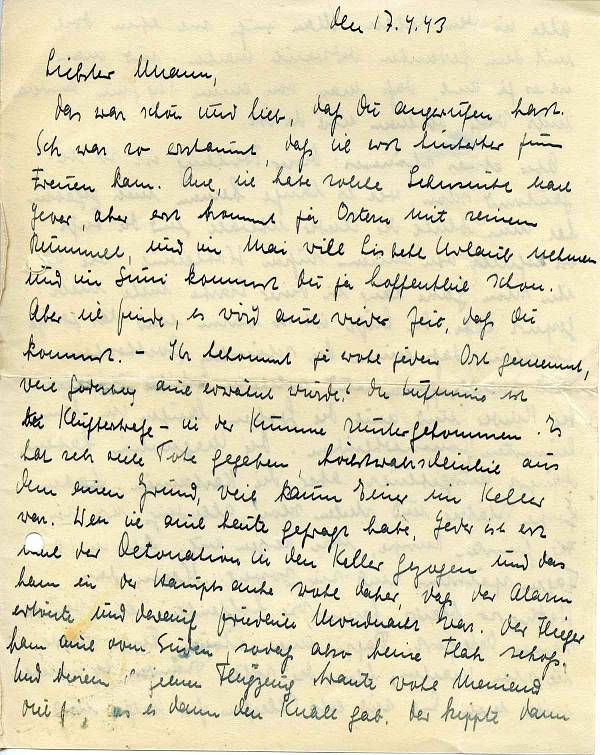 den 17.4.43
Liebster Mann,
das war schön und lieb, daß Du angerufen hast.
Ich war so erstaunt, daß ich erst hinterher zum
Freuen kam. Ach, ich habe solche Sehnsucht nach
Jever, aber erst kommt ja Ostern mit seinem
Rummel, und im Mai will Lisbeth Urlaub nehmen
und im Juni kommst Du ja hoffentlich schon.
Aber ich finde, es wird auch wieder Zeit, daß Du
kommst. – Ihr bekommt ja wohl jeden Ort genannt,
weil Godesberg auch erwähnt wurde! Die Luftmine ist
Klufterstraße – in der Krümme runtergekommen. Es
hat sehr viele Tote gegeben, höchstwahrscheinlich aus
dem einen Grund, weil kaum Einer im Keller
war. Wen ich auch heute gefragt habe, Jeder ist erst
nach der Detonation in den Keller gezogen und das
kam in der Hauptsache wohl daher, daß der Alarm
ertönte und derweil friedliche Mondnacht war. Der Flieger
kam auch vom Süden, sodaß also keine Flak schoß.
Und diesem Flugzeug traute wohl Niemand
als es dann den Knall gab. Der kippte dann